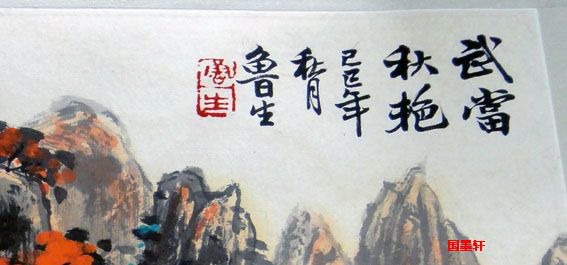 武當
秋艳
己巳年
秋月
鲁生
国墨轩